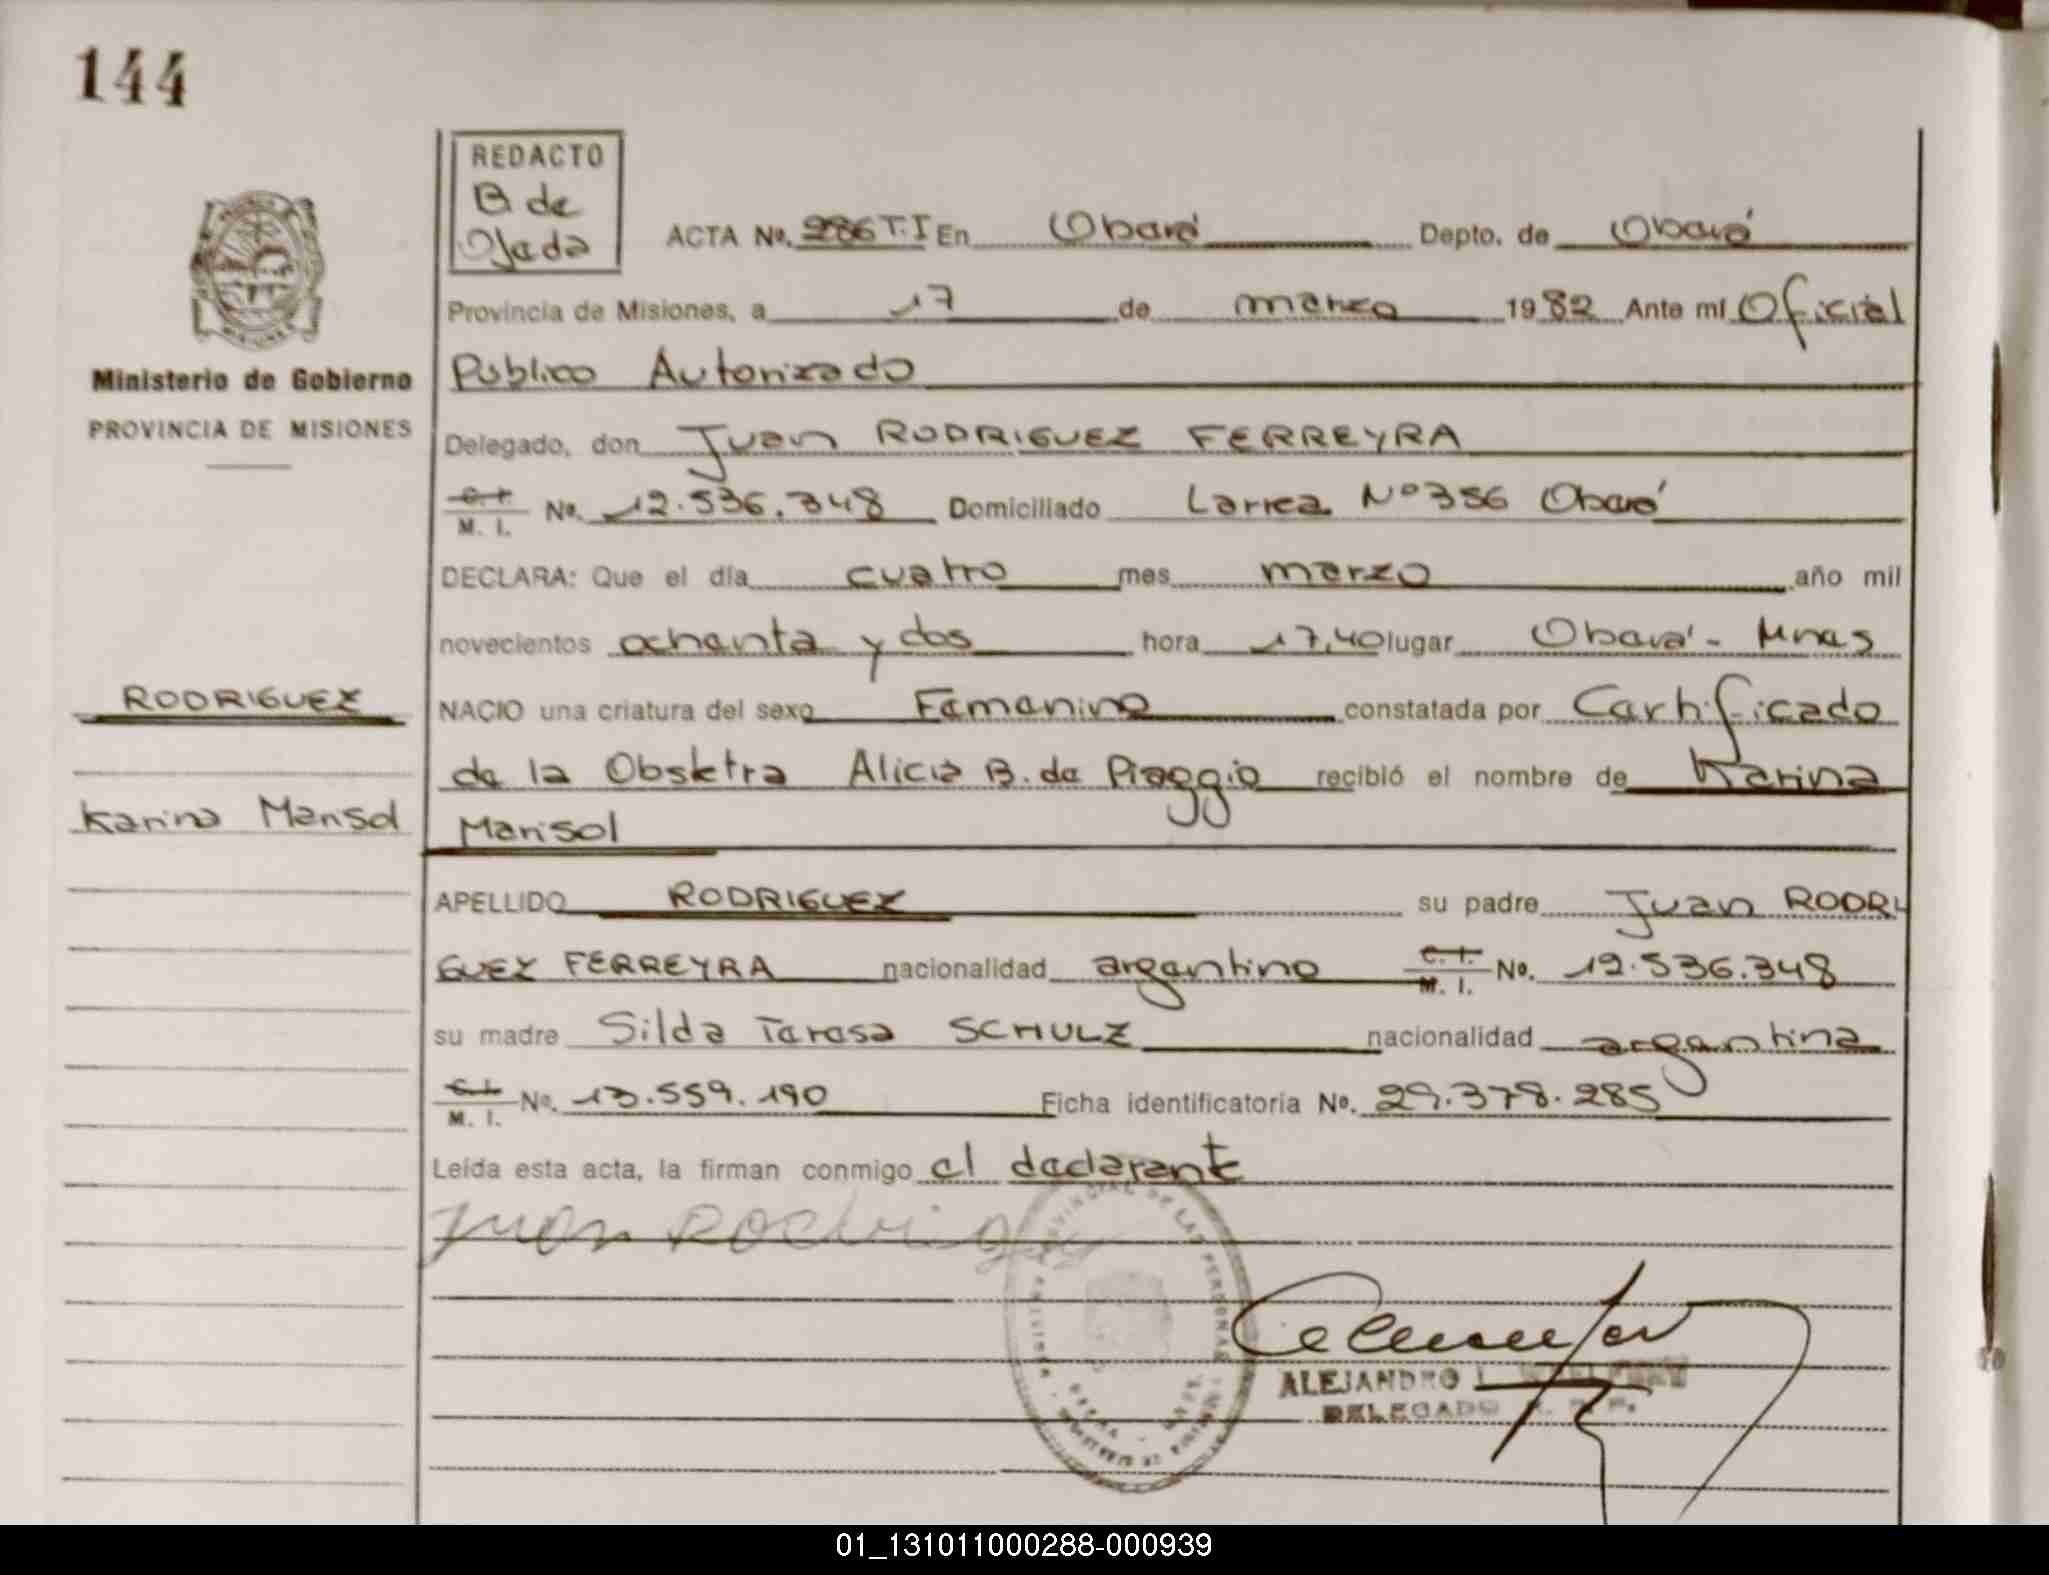 144
REDACTO
B de
Ojeda
ACTA No. 286 T.I En Oberá Depto. de Oberá
Provincia de Misiones, a 17 de marzo 1982 Ante mí Oficial
Público Autorizado
Ministerio de Gobierno
PROVINCIA DE MISIONES
Delegado, don Juan RODRIGUEZ FERREYRA
C.I.
M. I. No. 12.536.348 Domiciliado Larrea Nº 356 Oberá
DECLARA: Que el día cuatro mes marzo año mil
novecientos ochenta y dos hora 17,40 lugar Oberá - Mnes
RODRIGUEZ
NACIO una criatura del sexo Femenino constatada por Certificado
de la Obstetra Alicia B. de Piaggio recibió el nombre de Karina
Karina Marisol
Marisol
APELLIDO RODRIGUEZ su padre Juan RODRI
GUEZ FERREYRA nacionalidad argentino C.I. M. I. No. 12.536.348
su madre Silda Teresa SCHULZ nacionalidad argentina
C.I.
M. I. No. 13.559.190 Ficha identificatoria No. 29.378.285
Leída esta acta, la firman conmigo el declarante
Juan Rodrig
PROVINCIAL DE LAS PERSONAS
ALEJANDRO
DELEGADO
01_131011000288-000939